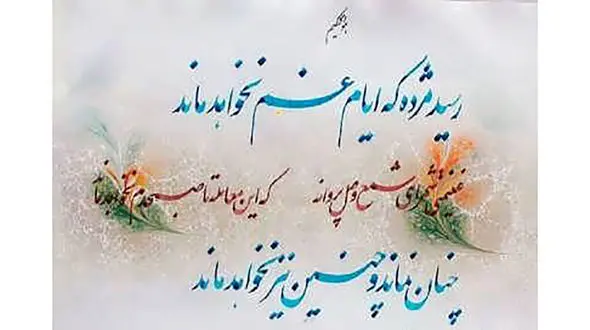 هوالحکیم
رسید مژده که ایام غم نخواهد ماند
غنیمتی شمر ای شمع وصل پروانه که این معامله تا صبحدم نخواهد ماند
چنان نماند و چنین نیز نخواهد ماند